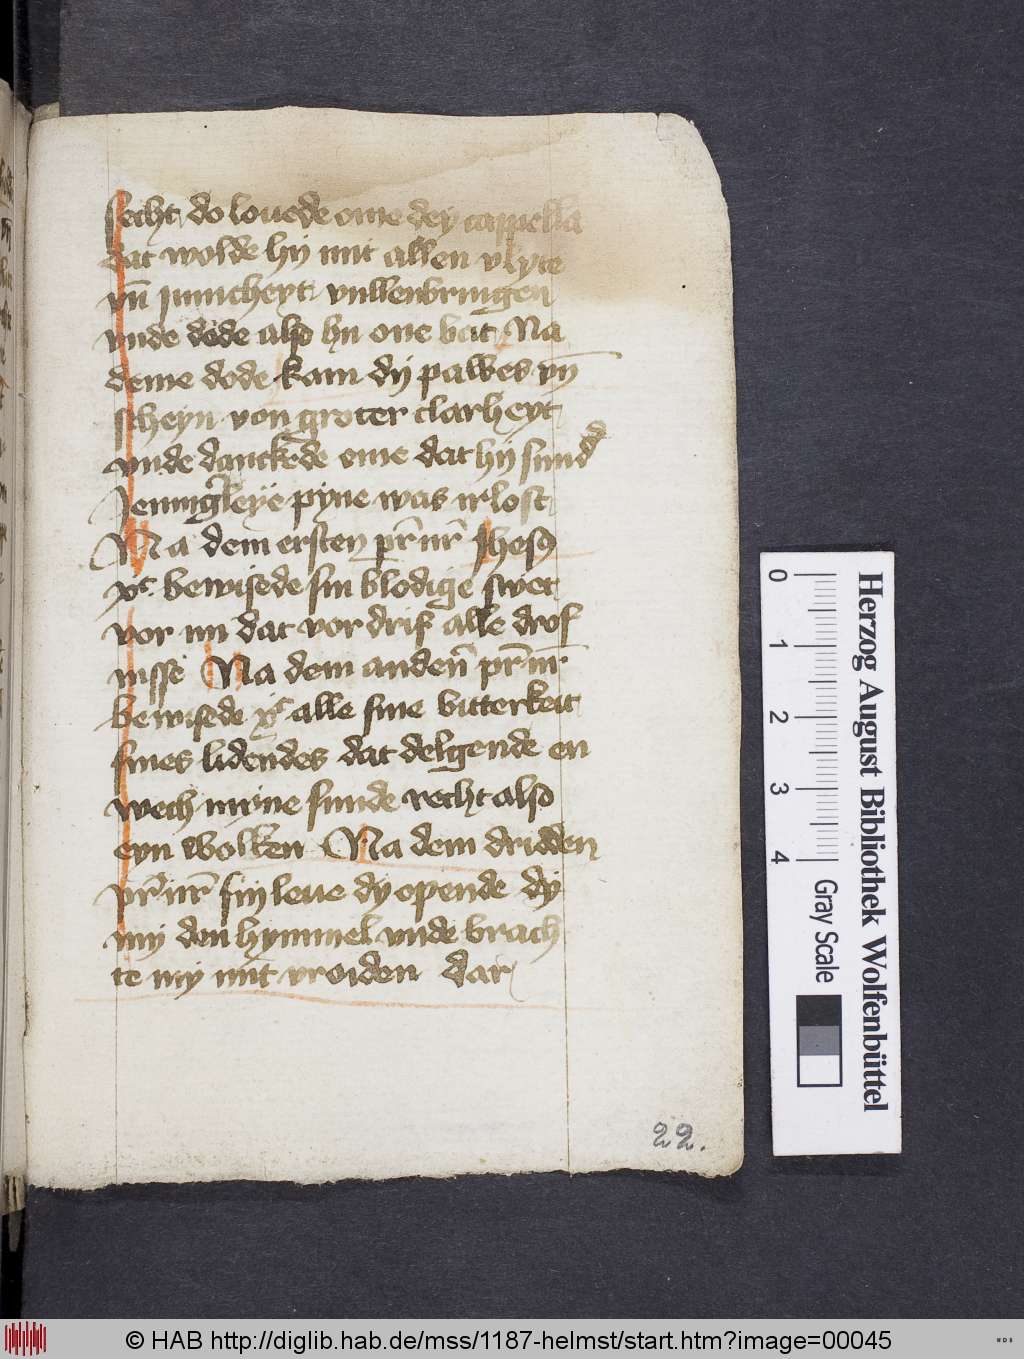 secht do louede ome dey cappella
dat wolde hy mit allen vlyte
vn̄ jnnicheyt vullenbringen
vnde dede also hy one bat Na
deme dode kam dy pawes vn̄
scheyn von groter clarheyt
vnde danckede eme dat hy sund
pyne was irlost
Na dem ersten pr̄ nr̄ Jhesꝯ
xp̄c bewisede sin blodige swet
vor mi dat vordrif alle drof
nisse Na dem anderē pr̄ nr̄
bewisede xp̄c alle sine bitterkeit
sines lidendes dat delgende en
wech mine sunde recht also
eyn wolken Na dem dridden
pr̄ nr̄ sin leue dy opende dy
my den hymmel vnde brach
te my mit vroiden dar
22.
Herzog August Bibliothek Wolfenbüttel
0 1 2 3 4
Gray Scale
© HAB http://diglib.hab.de/mss/1187-helmst/start.htm?image=00045
WDB